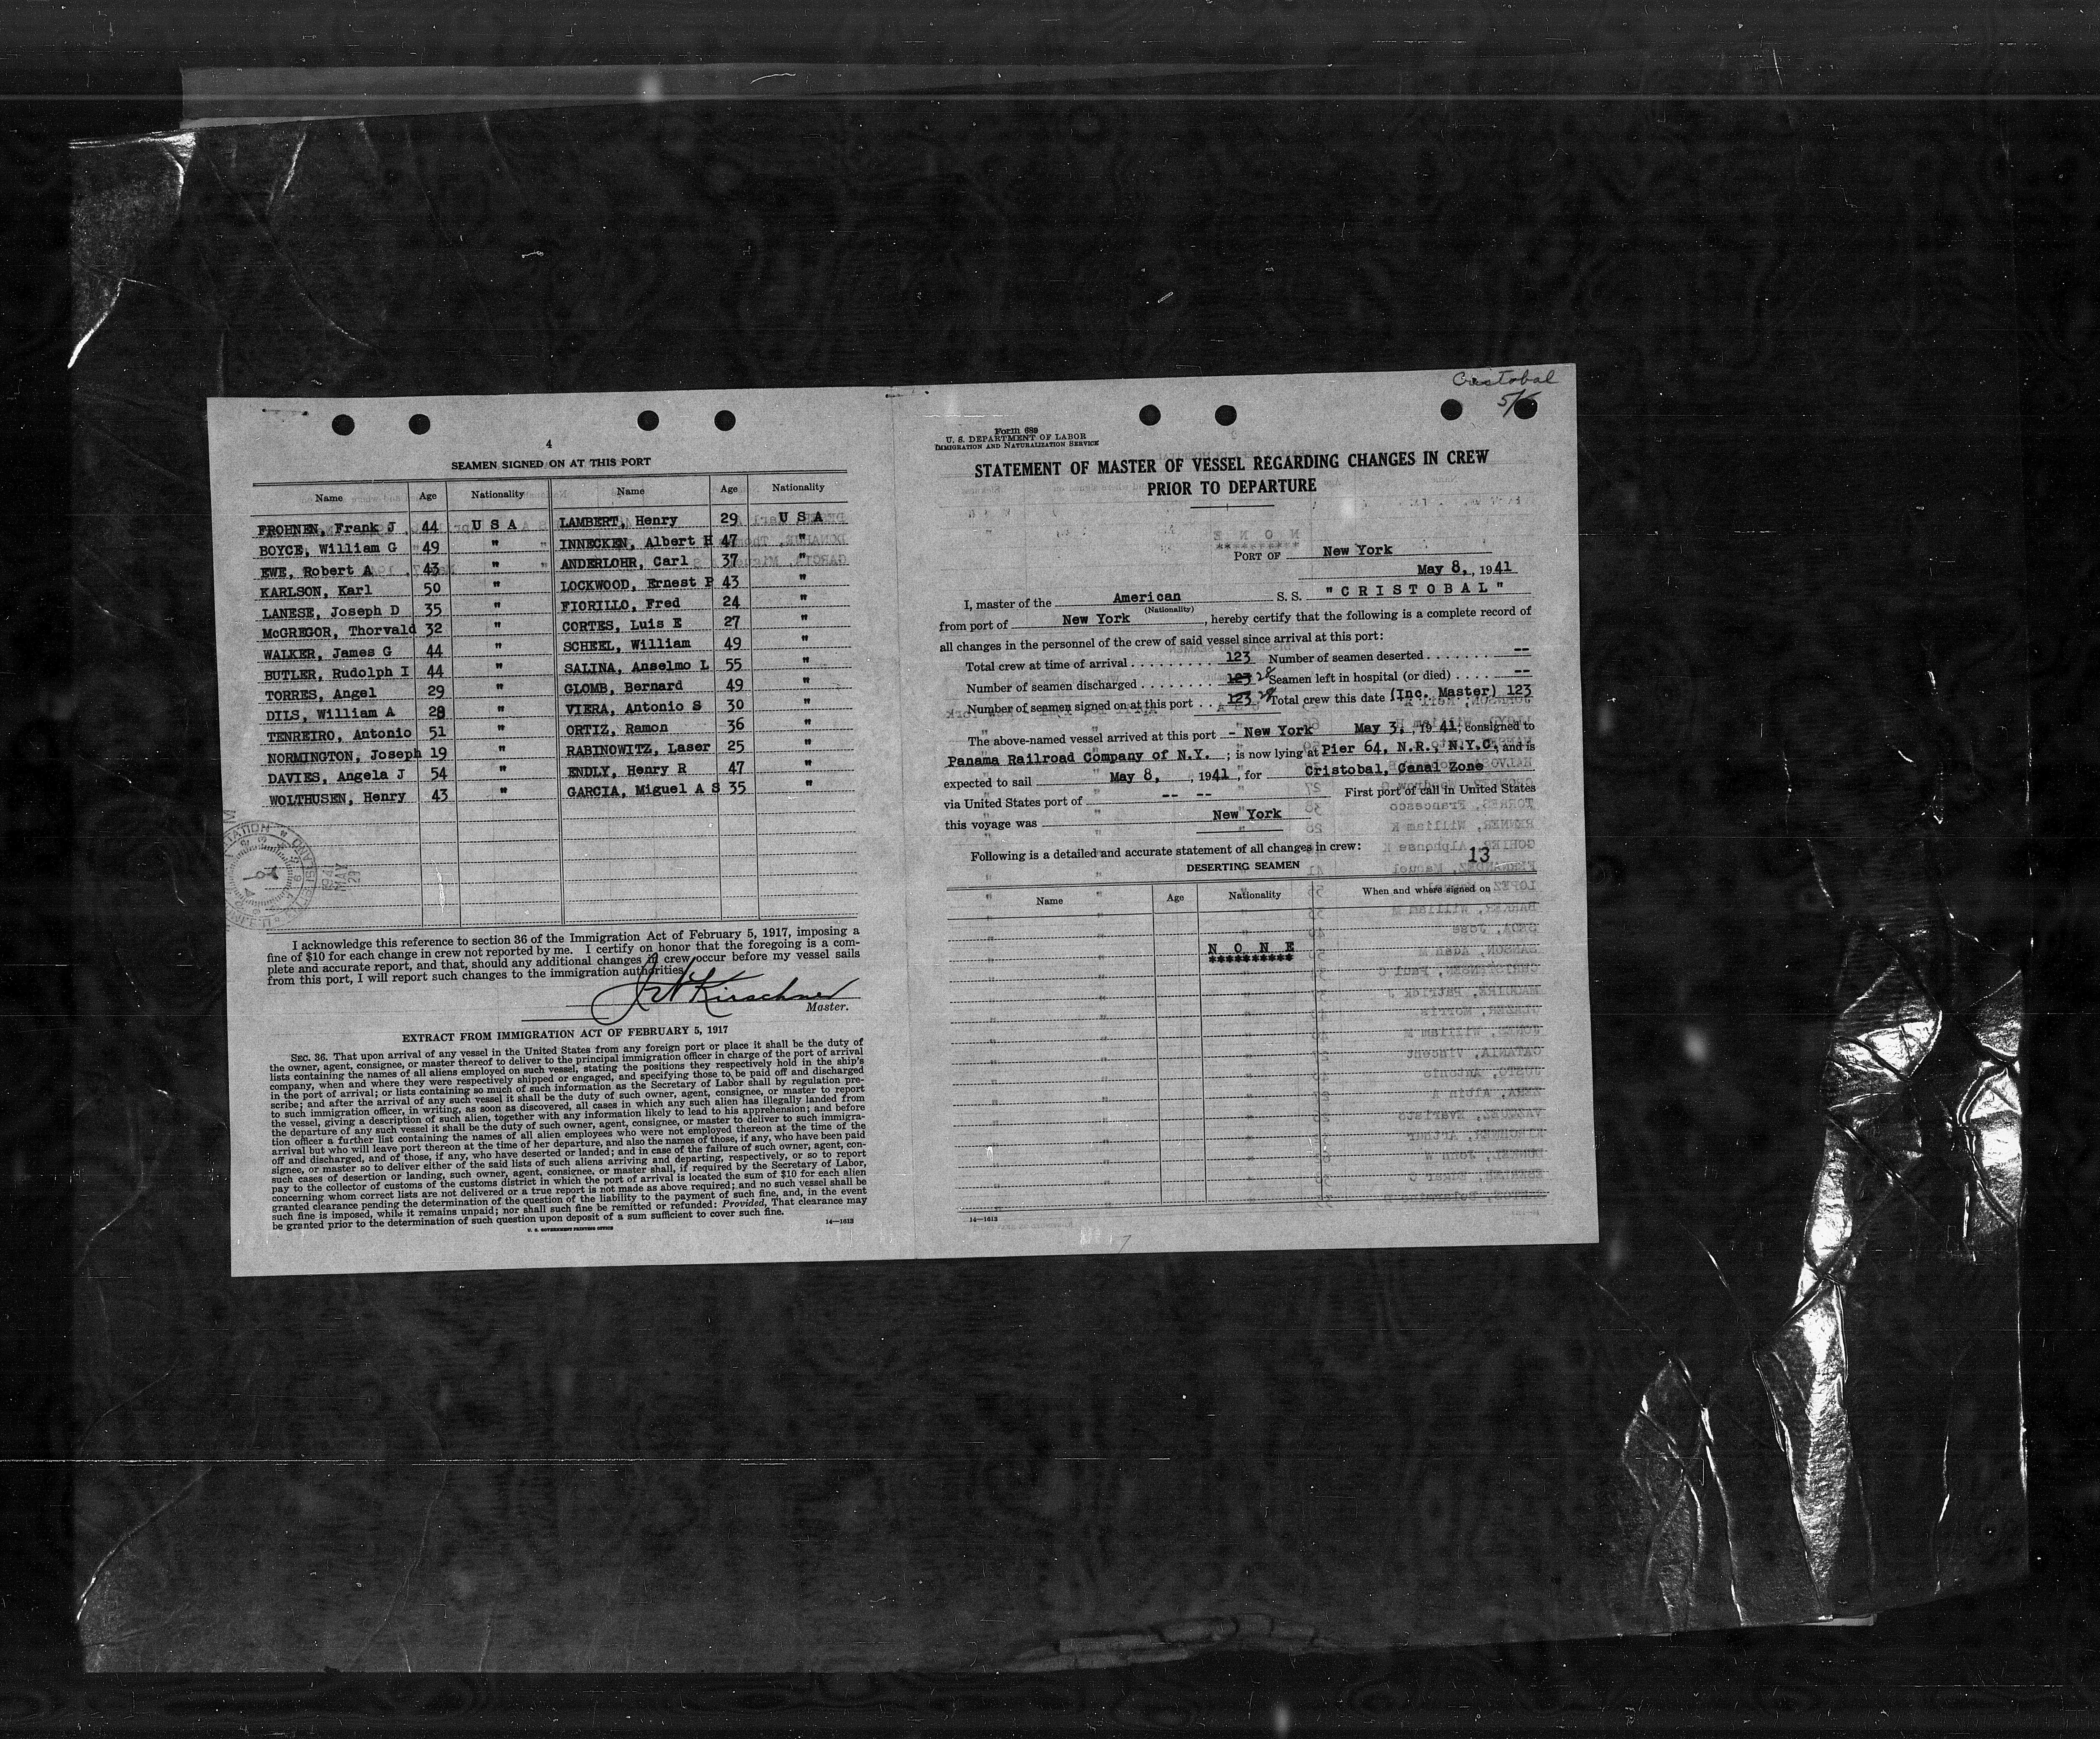 4
SEAMEN SIGNED ON AT THIS PORT
Name Age Nationality Name Age Nationality
FROHNEN, Frank J 44 U S A LAMBERT, Henry 29 U S A
BOYCE, William G 49 " INNECKEN, Albert H 47 "
EWE, Robert A 43 " ANDERLOHR, Carl 37 "
KARLSON, Karl 50 " LOCKWOOD, Ernest P 43 "
LANESE, Joseph D 35 " FIORILLO, Fred 24 "
McGREGOR, Thorvald 32 " CORTES, Luis E 27 "
WALKER, James G 44 " SCHEEL, William 49 "
BUTLER, Rudolph I 44 " SALINA, Anselmo L 55 "
TORRES, Angel 29 " GLOMB, Bernard 49 "
DILS, William A 28 " VIERA, Antonio S 30 "
TENREIRO, Antonio 51 " ORTIZ, Ramon 36 "
NORMINGTON, Joseph 19 " RABINOWITZ, Laser 25 "
DAVIES, Angela J 54 " ENDLY, Henry R 47 "
WOLTHUSEN, Henry 43 " GARCIA, Miguel A S 35 "
1941 MAY 29
I acknowledge this reference to section 36 of the Immigration Act of February 5, 1917, imposing a
fine of $10 for each change in crew not reported by me. I certify on honor that the foregoing is a com-
plete and accurate report, and that, should any additional changes in crew occur before my vessel sails
from this port, I will report such changes to the immigration authorities.
Kirschner
Master.
EXTRACT FROM IMMIGRATION ACT OF FEBRUARY 5, 1917
SEC. 36. That upon arrival of any vessel in the United States from any foreign port or place it shall be the duty of
the owner, agent, consignee, or master thereof to deliver to the principal immigration officer in charge of the port of arrival
lists containing the names of all aliens employed on such vessel, stating the positions they respectively hold in the ship's
company, when and where they were respectively shipped or engaged, and specifying those to be paid off and discharged
in the port of arrival; or lists containing so much of such information as the Secretary of Labor shall by regulation pre-
scribe; and after the arrival of any such vessel it shall be the duty of such owner, agent, consignee, or master to report
to such immigration officer, in writing, as soon as discovered, all cases in which any such alien has illegally landed from
the vessel, giving a description of such alien, together with any information likely to lead to his apprehension; and before
the departure of any such vessel it shall be the duty of such owner, agent, consignee, or master to deliver to such immigra-
tion officer a further list containing the names of all alien employees who were not employed thereon at the time of the
arrival but who will leave port thereon at the time of her departure, and also the names of those, if any, who have been paid
off and discharged, and of those, if any, who have deserted or landed; and in case of the failure of such owner, agent, con-
signee, or master so to deliver either of the said lists of such aliens arriving and departing, respectively, or so to report
such cases of desertion or landing, such owner, agent, consignee, or master shall, if required by the Secretary of Labor,
pay to the collector of customs of the customs district in which the port of arrival is located the sum of $10 for each alien
concerning whom correct lists are not delivered or a true report is not made as above required; and no such vessel shall be
granted clearance pending the determination of the question of the liability to the payment of such fine, and, in the event
such fine is imposed, while it remains unpaid; nor shall such fine be remitted or refunded: Provided, That clearance may
be granted prior to the determination of such question upon deposit of a sum sufficient to cover such fine.
U. S. GOVERNMENT PRINTING OFFICE 14—1613
Cristobal
5/
Form 689
U. S. DEPARTMENT OF LABOR
IMMIGRATION AND NATURALIZATION SERVICE
STATEMENT OF MASTER OF VESSEL REGARDING CHANGES IN CREW
PRIOR TO DEPARTURE
PORT OF New York
May 8, , 1941
I, master of the American S. S. "C R I S T O B A L"
(Nationality)
from port of New York , hereby certify that the following is a complete record of
all changes in the personnel of the crew of said vessel since arrival at this port:
Total crew at time of arrival . . . . . . . . . 123 Number of seamen deserted . . . . . . . --
Number of seamen discharged . . . . . . . . 123 28 Seamen left in hospital (or died) . . . . --
Number of seamen signed on at this port . . 123 28 Total crew this date (Inc. Master) 123
The above-named vessel arrived at this port - New York May 3, , 1941, consigned to
Panama Railroad Company of N.Y. ; is now lying at Pier 64, N.R., N.Y.C. and is
expected to sail May 8, , 1941 , for Cristobal, Canal Zone
via United States port of -- -- First port of call in United States
this voyage was New York
Following is a detailed and accurate statement of all changes in crew: 13
DESERTING SEAMEN
Name Age Nationality When and where signed on
N O N E
**********
14—1613